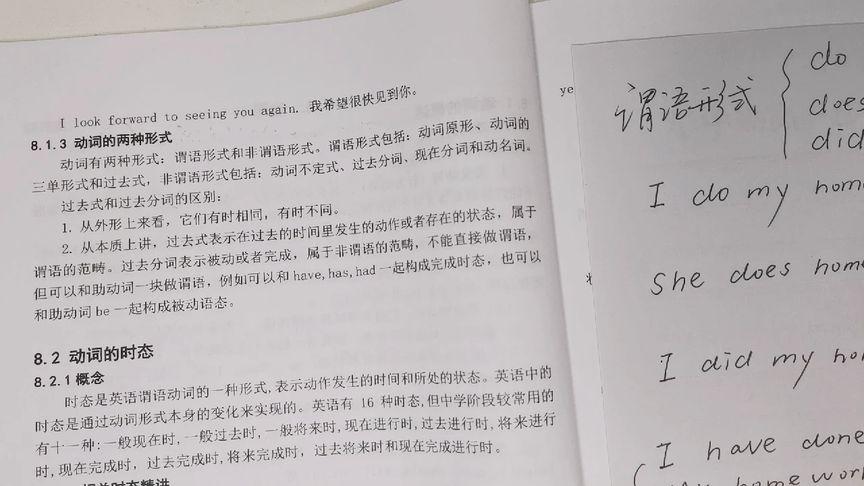 I look forward to seeing you again. 我希望很快见到你。
8.1.3 动词的两种形式
动词有两种形式：谓语形式和非谓语形式。谓语形式包括：动词原形、动词的
三单形式和过去式，非谓语形式包括：动词不定式、过去分词、现在分词和动名词。
过去式和过去分词的区别：
1. 从外形上来看，它们有时相同，有时不同。
2. 从本质上讲，过去式表示在过去的时间里发生的动作或者存在的状态，属于
谓语的范畴。过去分词表示被动或者完成，属于非谓语的范畴，不能直接做谓语，
但可以和助动词一块做谓语，例如可以和 have,has,had 一起构成完成时态，也可以
和助动词 be 一起构成被动语态。
8.2 动词的时态
8.2.1 概念
时态是英语谓语动词的一种形式,表示动作发生的时间和所处的状态。英语中的
时态是通过动词形式本身的变化来实现的。英语有 16 种时态,但中学阶段较常用的
有十一种:一般现在时,一般过去时,一般将来时,现在进行时,过去进行时,将来进行
时,现在完成时，过去完成时,将来完成时，过去将来时和现在完成进行时。
ye
谓语形式
do
does
did
I do my
She does
I did my
I have done